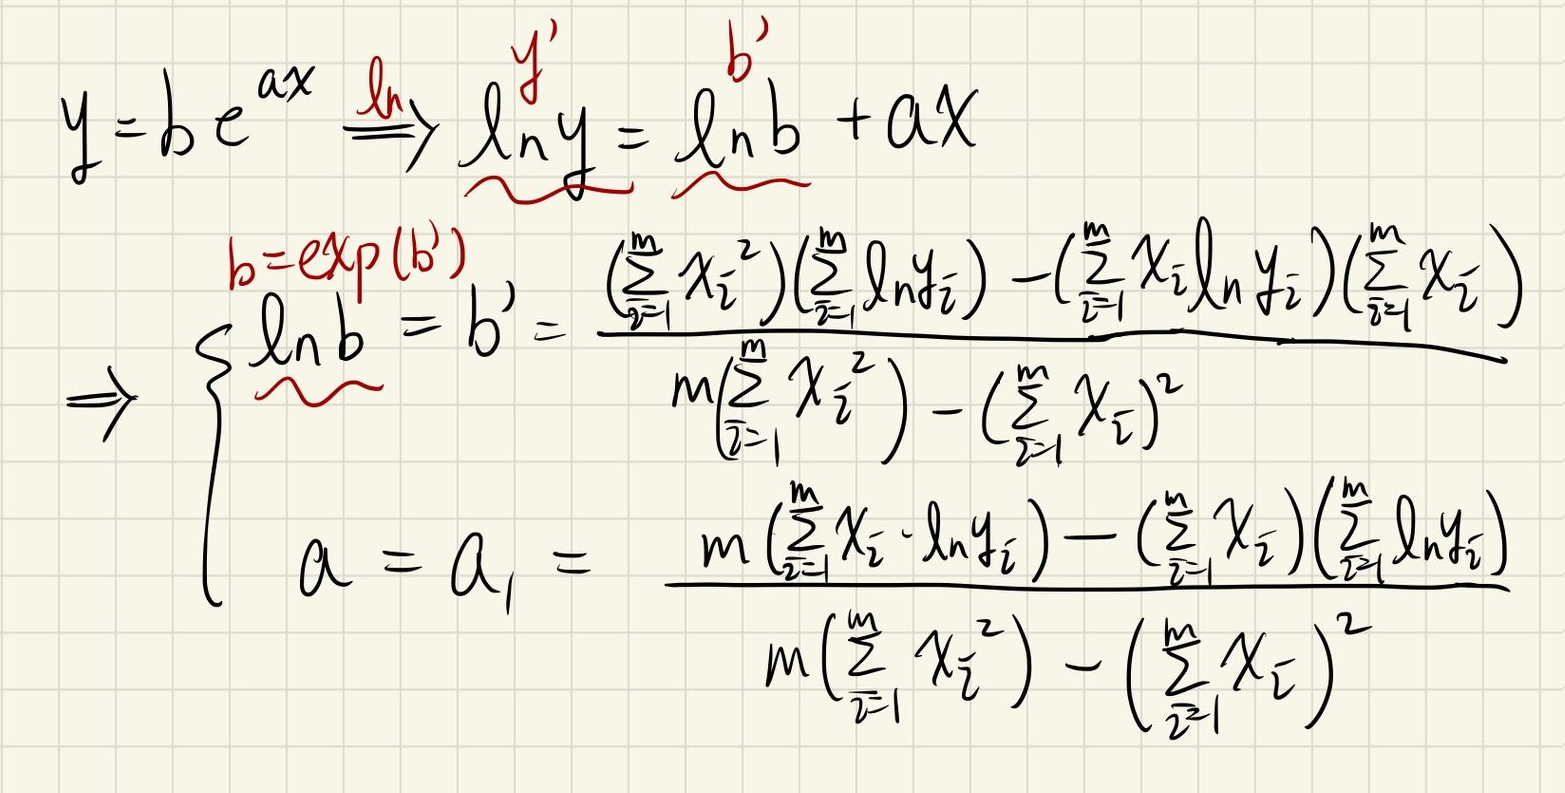 y' b'
y = be^{ax} \overset{ln}{\Longrightarrow} ln y = ln b + ax
b = exp(b')
\Longrightarrow \{ ln b = b' = \frac{(\sum_{i=1}^{m} x_i^2)(\sum_{i=1}^{m} ln y_i) - (\sum_{i=1}^{m} x_i ln y_i)(\sum_{i=1}^{m} x_i)}{m(\sum_{i=1}^{m} x_i^2) - (\sum_{i=1}^{m} x_i)^2}
a = a_1 = \frac{m(\sum_{i=1}^{m} x_i \cdot ln y_i) - (\sum_{i=1}^{m} x_i)(\sum_{i=1}^{m} ln y_i)}{m(\sum_{i=1}^{m} x_i^2) - (\sum_{i=1}^{m} x_i)^2}